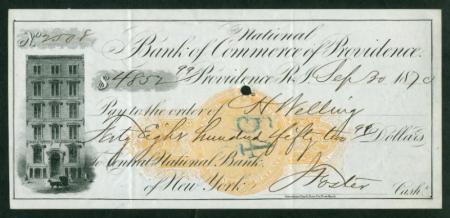 No 2508
National
Bank of Commerce of Providence.
$4852 99 Providence R.I. Sep 30 187
Pay to the order of H Welling
Forty Eight hundred fifty two 99 Dollars
to Central National Bank
of New York
J Foster
Cash.